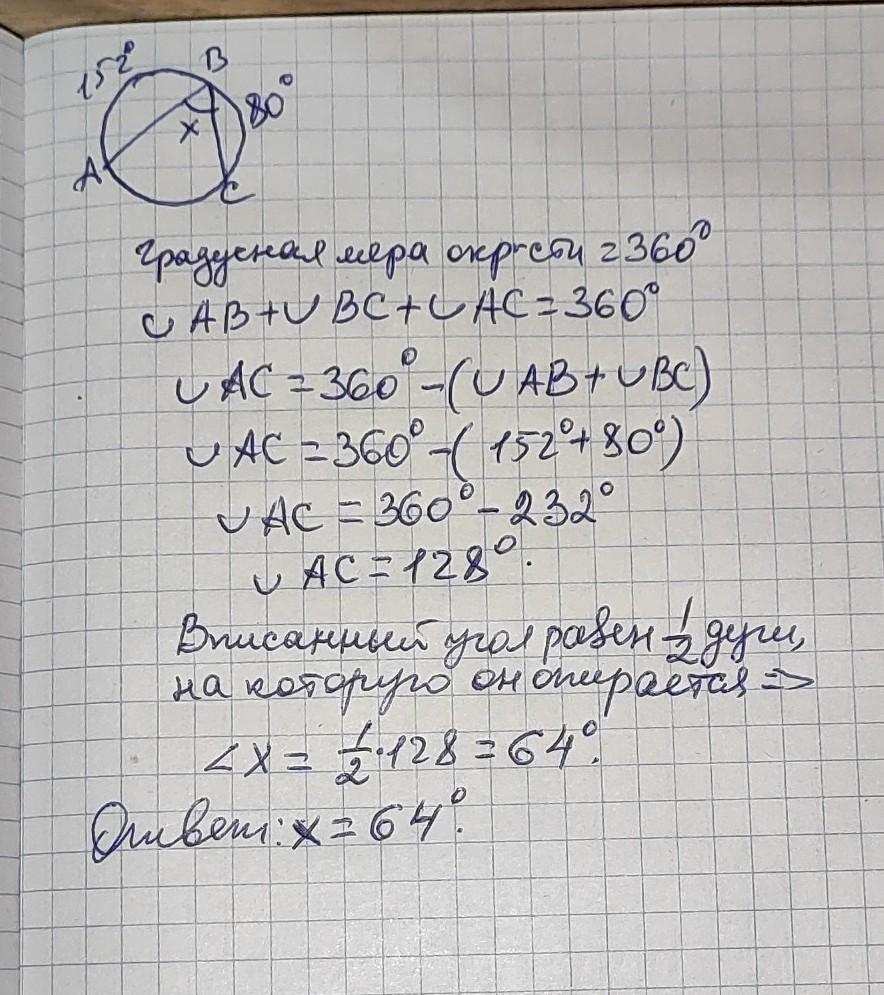 152°
B
80°
x
A
C
Градусная мера окр-сти = 360°
∪ AB + ∪ BC + ∪ AC = 360°
∪ AC = 360° - (∪ AB + ∪ BC)
∪ AC = 360° - (152° + 80°)
∪ AC = 360° - 232°
∪ AC = 128°.
Вписанный угол равен 1/2 дуги,
на которую он опирается =>
∠X = 1/2 · 128 = 64°.
Ответ: x = 64°.